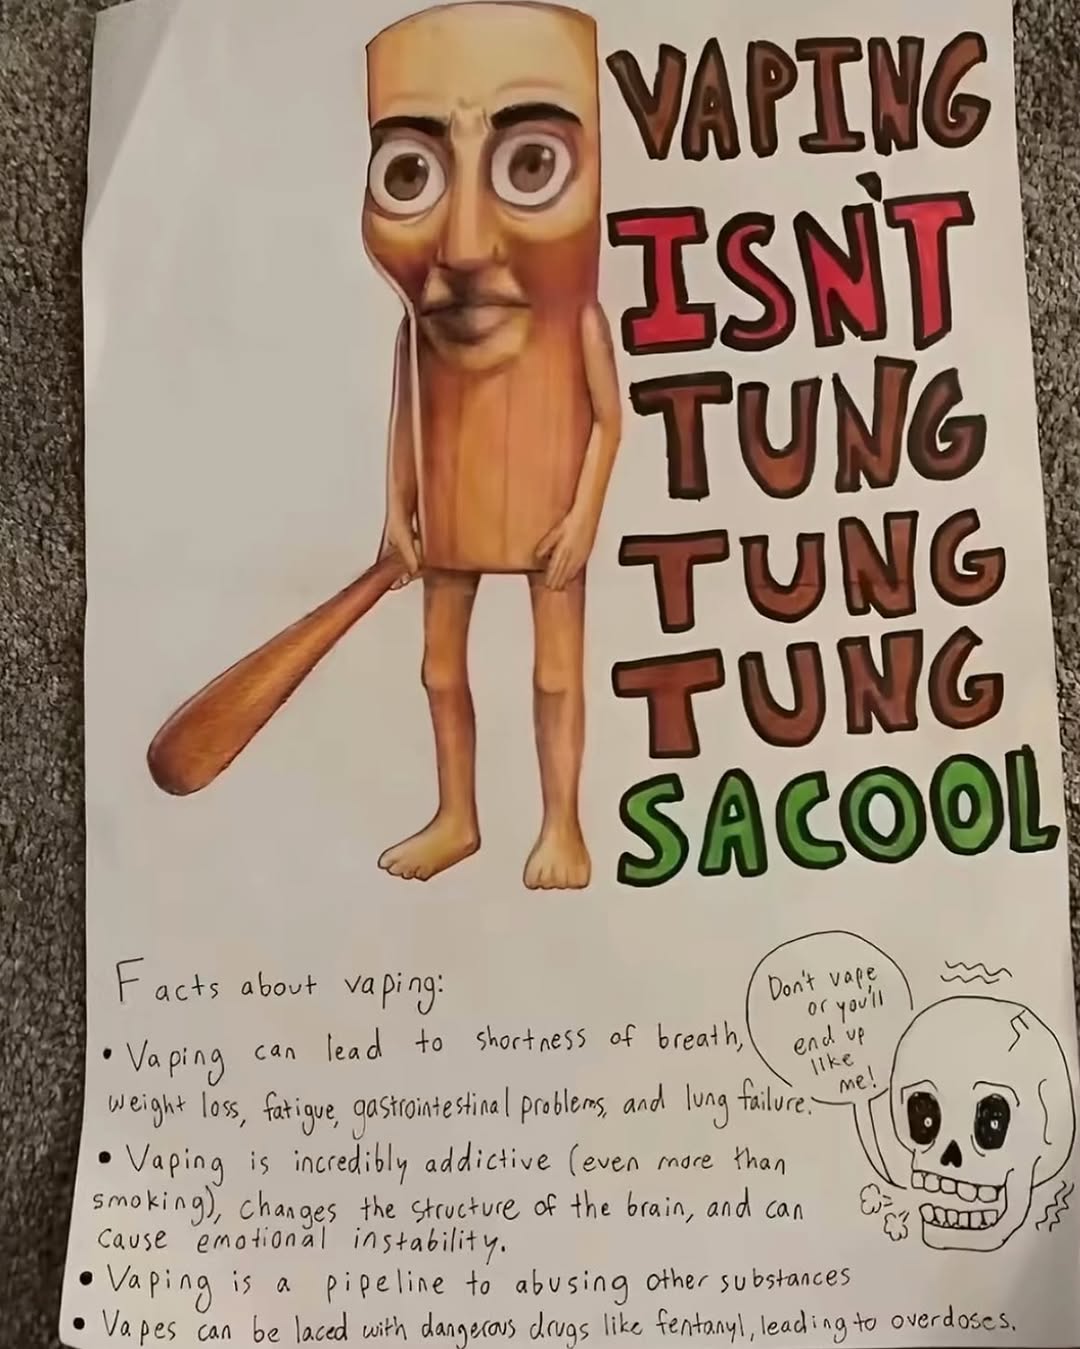 VAPING
ISN'T
TUNG
TUNG
TUNG
SACOOL
Facts about vaping:
• Vaping can lead to shortness of breath,
weight loss, fatigue, gastrointestinal problems, and lung failure.
• Vaping is incredibly addictive (even more than
smoking), changes the structure of the brain, and can
cause emotional instability.
• Vaping is a pipeline to abusing other substances
• Vapes can be laced with dangerous drugs like fentanyl, leading to overdoses.
Don't vape
or you'll
end up
like
me!